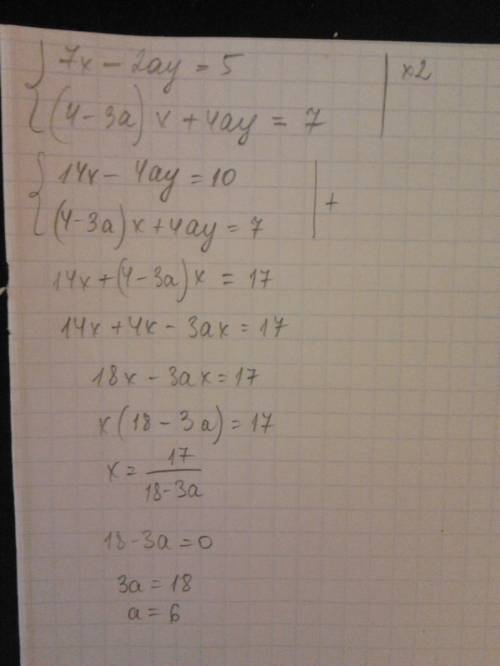 { 7x - 2ay = 5 | x2
{ (4-3a) x + 4ay = 7
{ 14x - 4ay = 10 | +
{ (4-3a) x + 4ay = 7
14x + (4-3a) x = 17
14x + 4x - 3ax = 17
18x - 3ax = 17
x (18 - 3a) = 17
x = 17/18-3a
18-3a = 0
3a = 18
a = 6